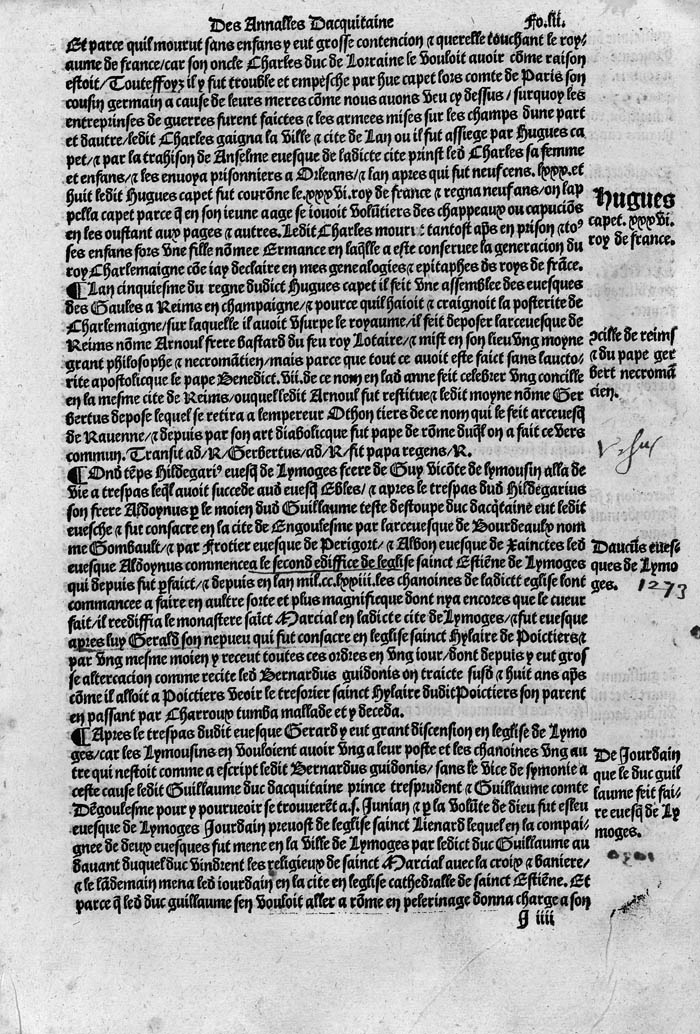 Des Annalles Dacquitaine
Fo.lii.
Et parce quil mourut sans enfans y eut grosse contencion ⁊ querelle touchant le roy-
aume de france/car son oncle Charles duc de Lorraine le vouloit auoir cõme raison
estoit/Touteffoyz il y fut trouble et empesche par hue capet lors comte de Paris son
cousin germain a cause de leurs meres cõme nous auons veu cy dessus/surquoy les
entreprinses de guerres furent faictes ⁊ les armees mises sur les champs dune part
et dautre/ledit Charles gaigna la ville ⁊ cite de Lan ou il fut assiege par Hugues ca
pet/⁊ par la trahison de Anselme euesque de ladicte cite prinst led Charles sa femme
et enfans/⁊ les enuoya prisonniers a Orleans/⁊ lan apres qui fut neuf cens.lxxx.et
huit ledit Hugues capet fut courõne le.xxxvi.roy de france ⁊ regna neuf ans/on lap
pella capet parce q̃ en son ieune aage se iouoit volũtiers des chappeaux ou capuciõs
en les oustant aux pages ⁊ autres. Ledit Charles mourut tantost aps̃ en prison ⁊ to⁹
ses enfans fors vne fille nõmee Ermance en laq̃lle a este conseruee la generacion du
roy Charlemaigne cõe iay declaire en mes genealogies ⁊ epitaphes ds roys de frãce.
Hugues
capet.xxxvi.
roy de france.
¶Lan cinquiesme du regne dudict Hugues capet il feit vne assemblee des euesques
des Gaules a Reims en champaigne/⁊ pource quil haioit ⁊ craignoit la posterite de
Charlemaigne/sur laquelle il auoit vsurpe le royaume/il feit deposer larceuesque de
Reims nõme Arnoul frere bastard du feu roy Lotaire/⁊ mist en son lieu vng moyne
grant philosophe ⁊ necromãtien/mais parce que tout ce auoit este faict sans laucto-
rite apostolicque le pape Benedict.vii.de ce nom en lad anne feit celebrer vng concille
en la mesme cite de Reims/ouquel ledit Arnoul fut restitue ⁊ ledit moyne nõme Ger
bertus depose lequel se retira a lempereur Othon tiers de ce nom qui le feit arceuesq̃
de Rauenne/⁊ depuis par son art diabolicque fut pape de rõme duq̃l on a fait ce vers
commun. Transit ad/R/Gerbertus/ad/R/fit papa regens/R.
ↄcille de reims
⁊ du pape ger
bert necromã
cien.
¶Ond tẽps Hildegari⁹ euesq̃ de Lymoges frere de Guy vicõte de lymousin alla de
vie a trespas leq̃l auoit succede aud euesq̃ Ebles/⁊ apres le trespas dud Hildegarius
son frere Aldoynus p le moien dud Guillaume teste destoupe duc dacq̃taine eut ledit
euesche ⁊ fut consacre en la cite de Engoulesme par larceuesque de Bourdeaulx nom
me Gombault/⁊ par Frotier euesque de Perigort/⁊ Albon euesque de Xainctes led
euesque Aldoynus commencea le second ediffice de leglise sainct Estiẽne de Lymoges
qui depuis fut pfaict/⁊ depuis en lan mil.cc.lxxiii.les chanoines de ladictt eglise lont
commancee a faire en aultre sorte et plus magnificque dont nya encores que le cueur
fait/il reediffia le monastere saict Marcial en ladicte cite de Lymoges/⁊ fut euesque
apres luy Gerald son nepueu qui fut consacre en leglise sainct Hylaire de Poictiers ⁊
par vng mesme moien y receut toutes ces ordres en vng iour/dont depuis y eut gros
se altercacion comme recite led Bernardus guidonis on traicte susd ⁊ huit ans aps̃
cõme il alloit a Poictiers veoir le tresorier sainct Hylaire dudit Poictiers son parent
en passant par Charroux tumba mallade et y deceda.
Daucũs eues-
ques de Lymo
ges.
1273
¶Apres le trespas dudit euesque Gerard y eut grant discension en leglise de Lymo
ges/car les Lymousins en vouloient auoir vng a leur poste et les chanoines vng au
tre qui nestoit comme a escript ledit Bernardus guidonis/sans le vice de symonie a
ceste cause ledit Guillaume duc dacquitaine prince trespru­dent ⁊ Guillaume comte
Dẽgoulesme pour y pourueoir se trouuerẽt a.s. Junian ⁊ p la volũte de dieu fut esleu
euesque de Lymoges Jourdain preuost de leglise sainct Lienard lequel en la compai-
gnee de deux euesques fut mene en la ville de Lymoges par ledict duc Guillaume au
dauant duquel duc vindrent les religieux de sainct Marcial auec la croix ⁊ baniere/
⁊ le lãdemain mena led iourdain en la cite en leglise cathedralle de sainct Estiẽne. Et
parce q̃ led duc guillaume sen vouloit aller a rõme en pelerinage donna charge a son
De Jourdain
que le duc guil
laume feit fai-
re euesq̃ de Ly
moges.
J iiii